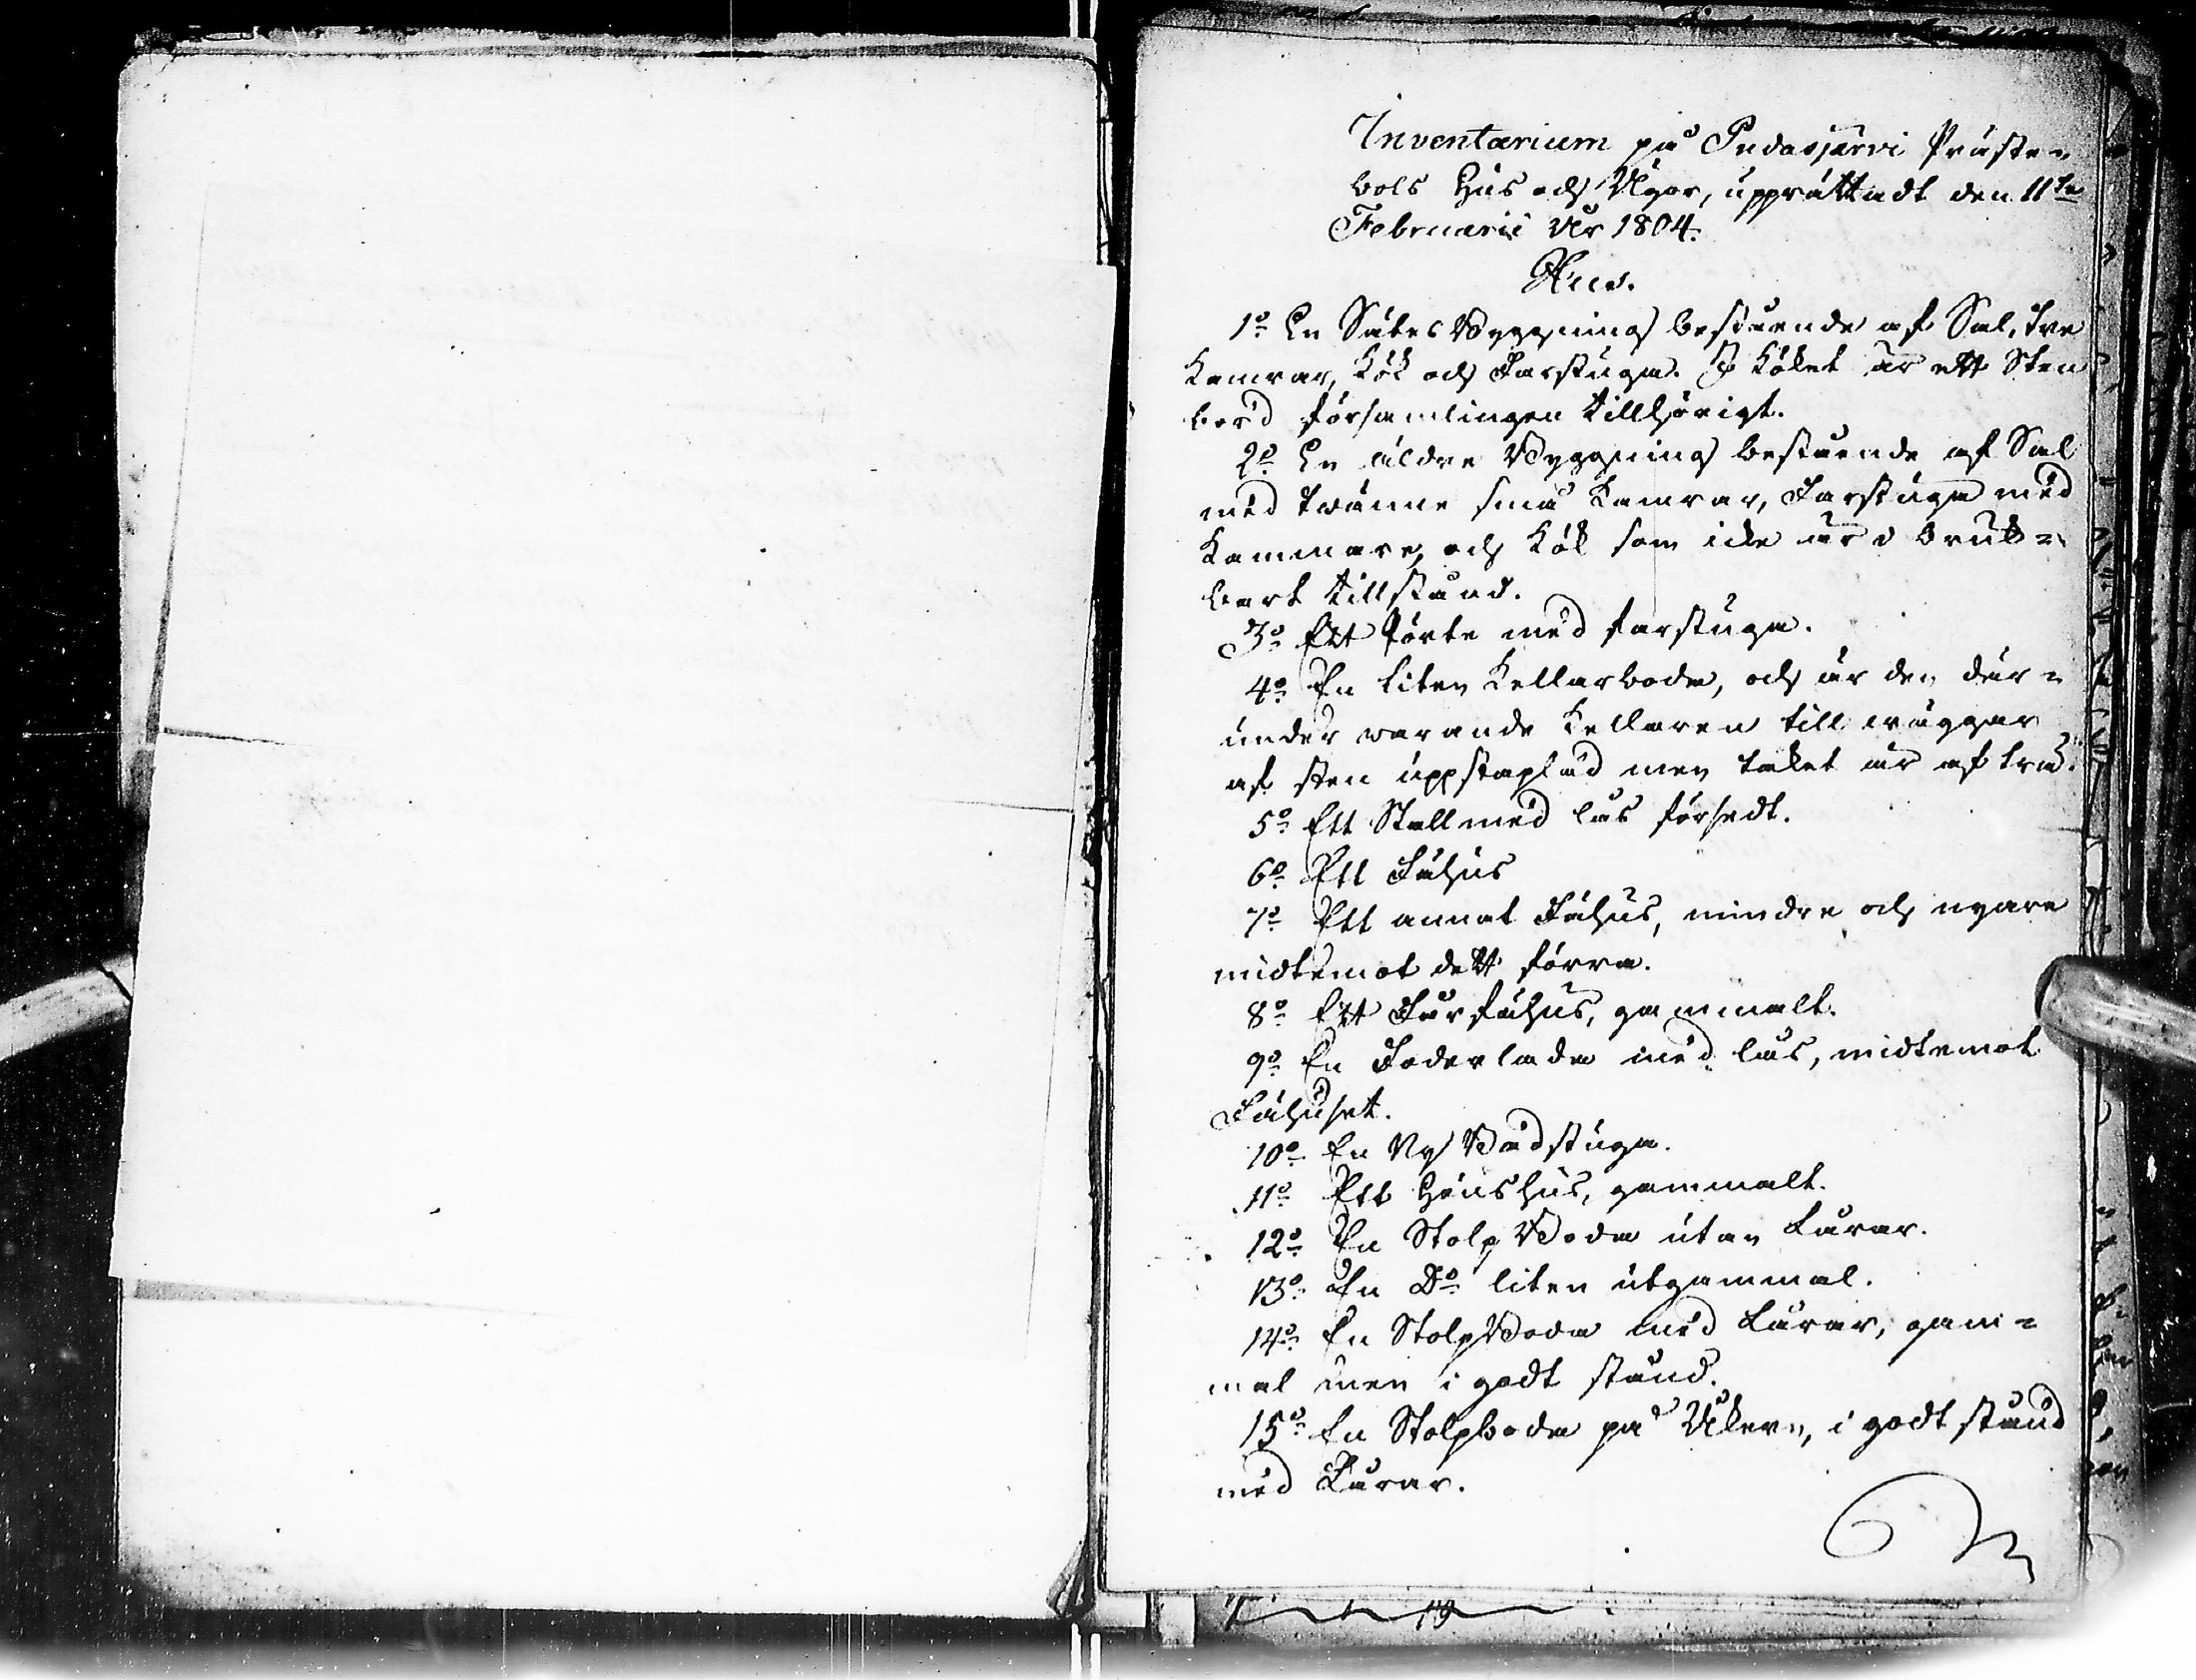 Inventarium på Pudasjärvi Präste=
bols Hus och Ägor, upprättadt den 11te
Februarii År 1804.
Hus.
1o En Sätes Byggning bestående af Sal, tre
Kamrar, Kök och Farstuga. I Köket är ett Sten
bord församlingen tillhörigt.
2o En äldre Byggning bestående af Sal
med twänne små Kamrar, Farstuga med
Kammare, och Kök som icke är i bruk=
bart tillstånd.
3o Ett Pörte med farstuga.
4o En liten Kellarboda, och är den där=
under warande Kellaren till wäggar
af sten uppstaplad men taket är af trä.
5o Ett Stall med lås försedt.
6o Ett Fähus
7o Ett annat Fähus, mindre och nyare
midtemot dett förra.
8o Ett Fårfähus, gammalt.
9o En Foderlada med lås, midtemot
Fähuset.
10o En Ny Badstuga.
11o Ett Hönshus, gammalt.
12o En Stolp Boda utan Lårar.
13o En Do liten utgammal.
14o En Stolp Boda med Lårar, gam=
mal men i godt stånd.
15o En Stolpboda på Åkern, i godt stånd
med Lårar.